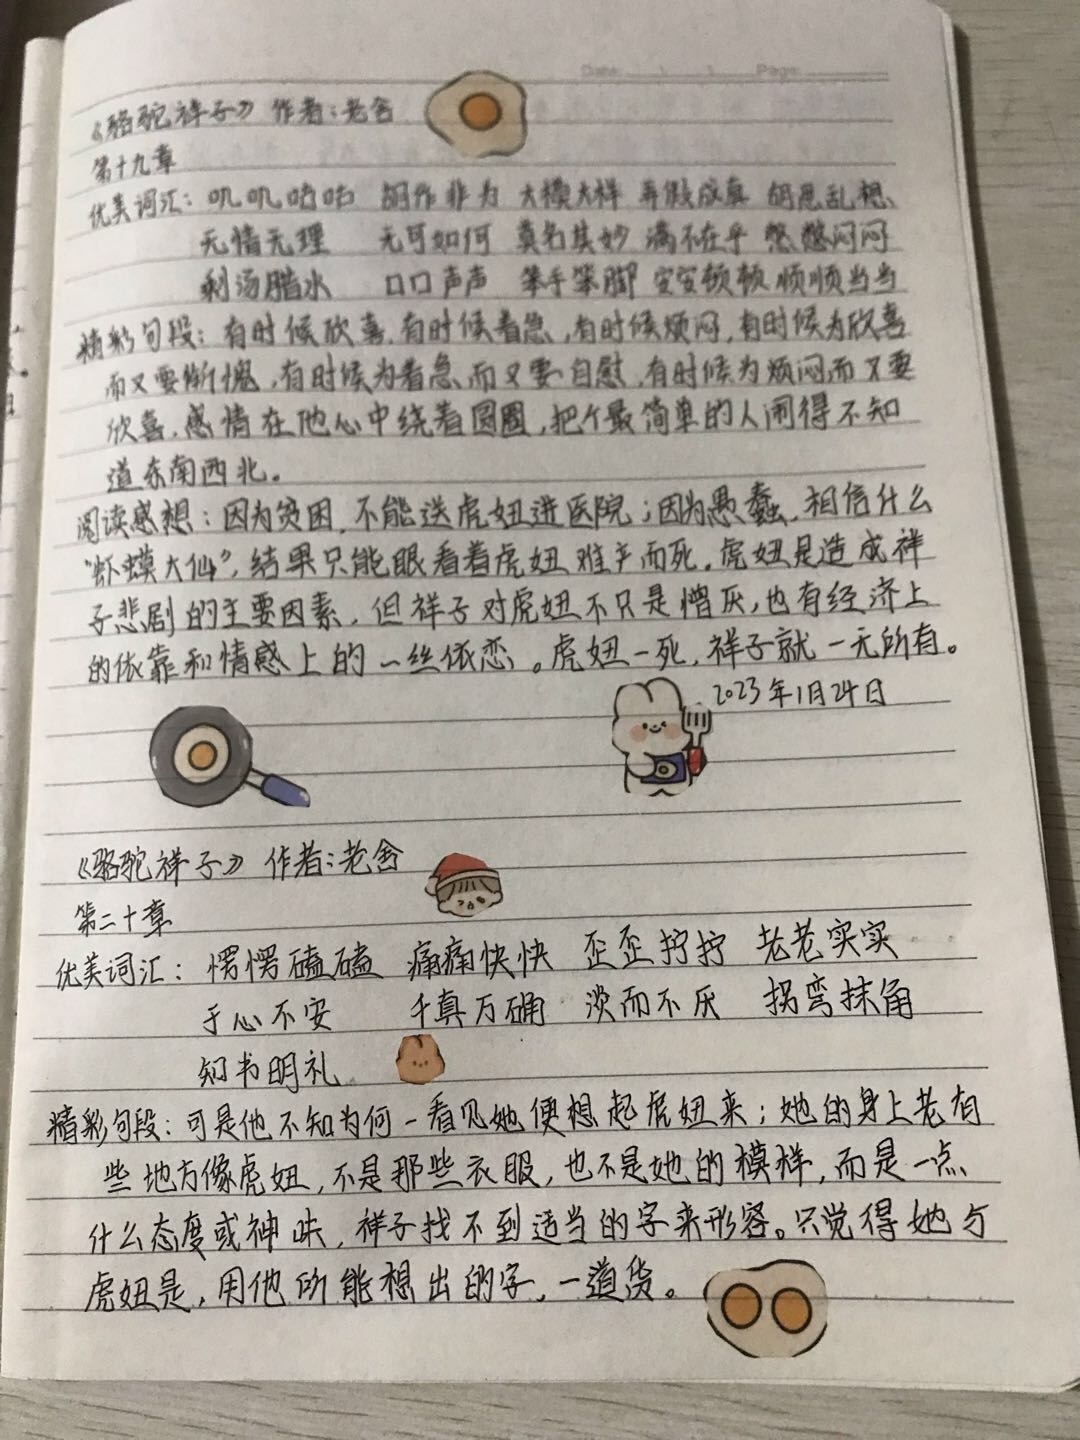 Date Page
《骆驼祥子》 作者:老舍
第十九章
优美词汇: 叽叽咕咕 胡作非为 大模大样 弄假成真 胡思乱想
无情无理 无可如何 莫名其妙 满不在乎 憋憋闷闷
剩汤腊水 口口声声 笨手笨脚 安安顿顿 顺顺当当
精彩句段: 有时候欣喜,有时候着急,有时候烦闷,有时候为欣喜
而又要惭愧,有时候为着急而又要自慰,有时候为烦闷而又要
欣喜,感情在他心中绕着圆圈,把个最简单的人闹得不知
道东南西北。
阅读感想:因为贫困,不能送虎妞进医院;因为愚蠢,相信什么
“虾蟆大仙”,结果只能眼看着虎妞难产而死。虎妞是造成祥
子悲剧的主要因素,但祥子对虎妞不只是憎厌,也有经济上
的依靠和情感上的一丝依恋。虎妞一死,祥子就一无所有。
2023年1月24日
《骆驼祥子》 作者:老舍
第二十章
优美词汇: 愣愣磕磕 痛痛快快 歪歪拧拧 老老实实
于心不安 千真万确 淡而不厌 拐弯抹角
知书明礼
精彩句段:可是他不知为何一看见她便想起虎妞来;她的身上老有
些地方像虎妞,不是那些衣服,也不是她的模样,而是一点
什么态度或神味,祥子找不到适当的字来形容。只觉得她与
虎妞是,用他所能想出的字,一道货。